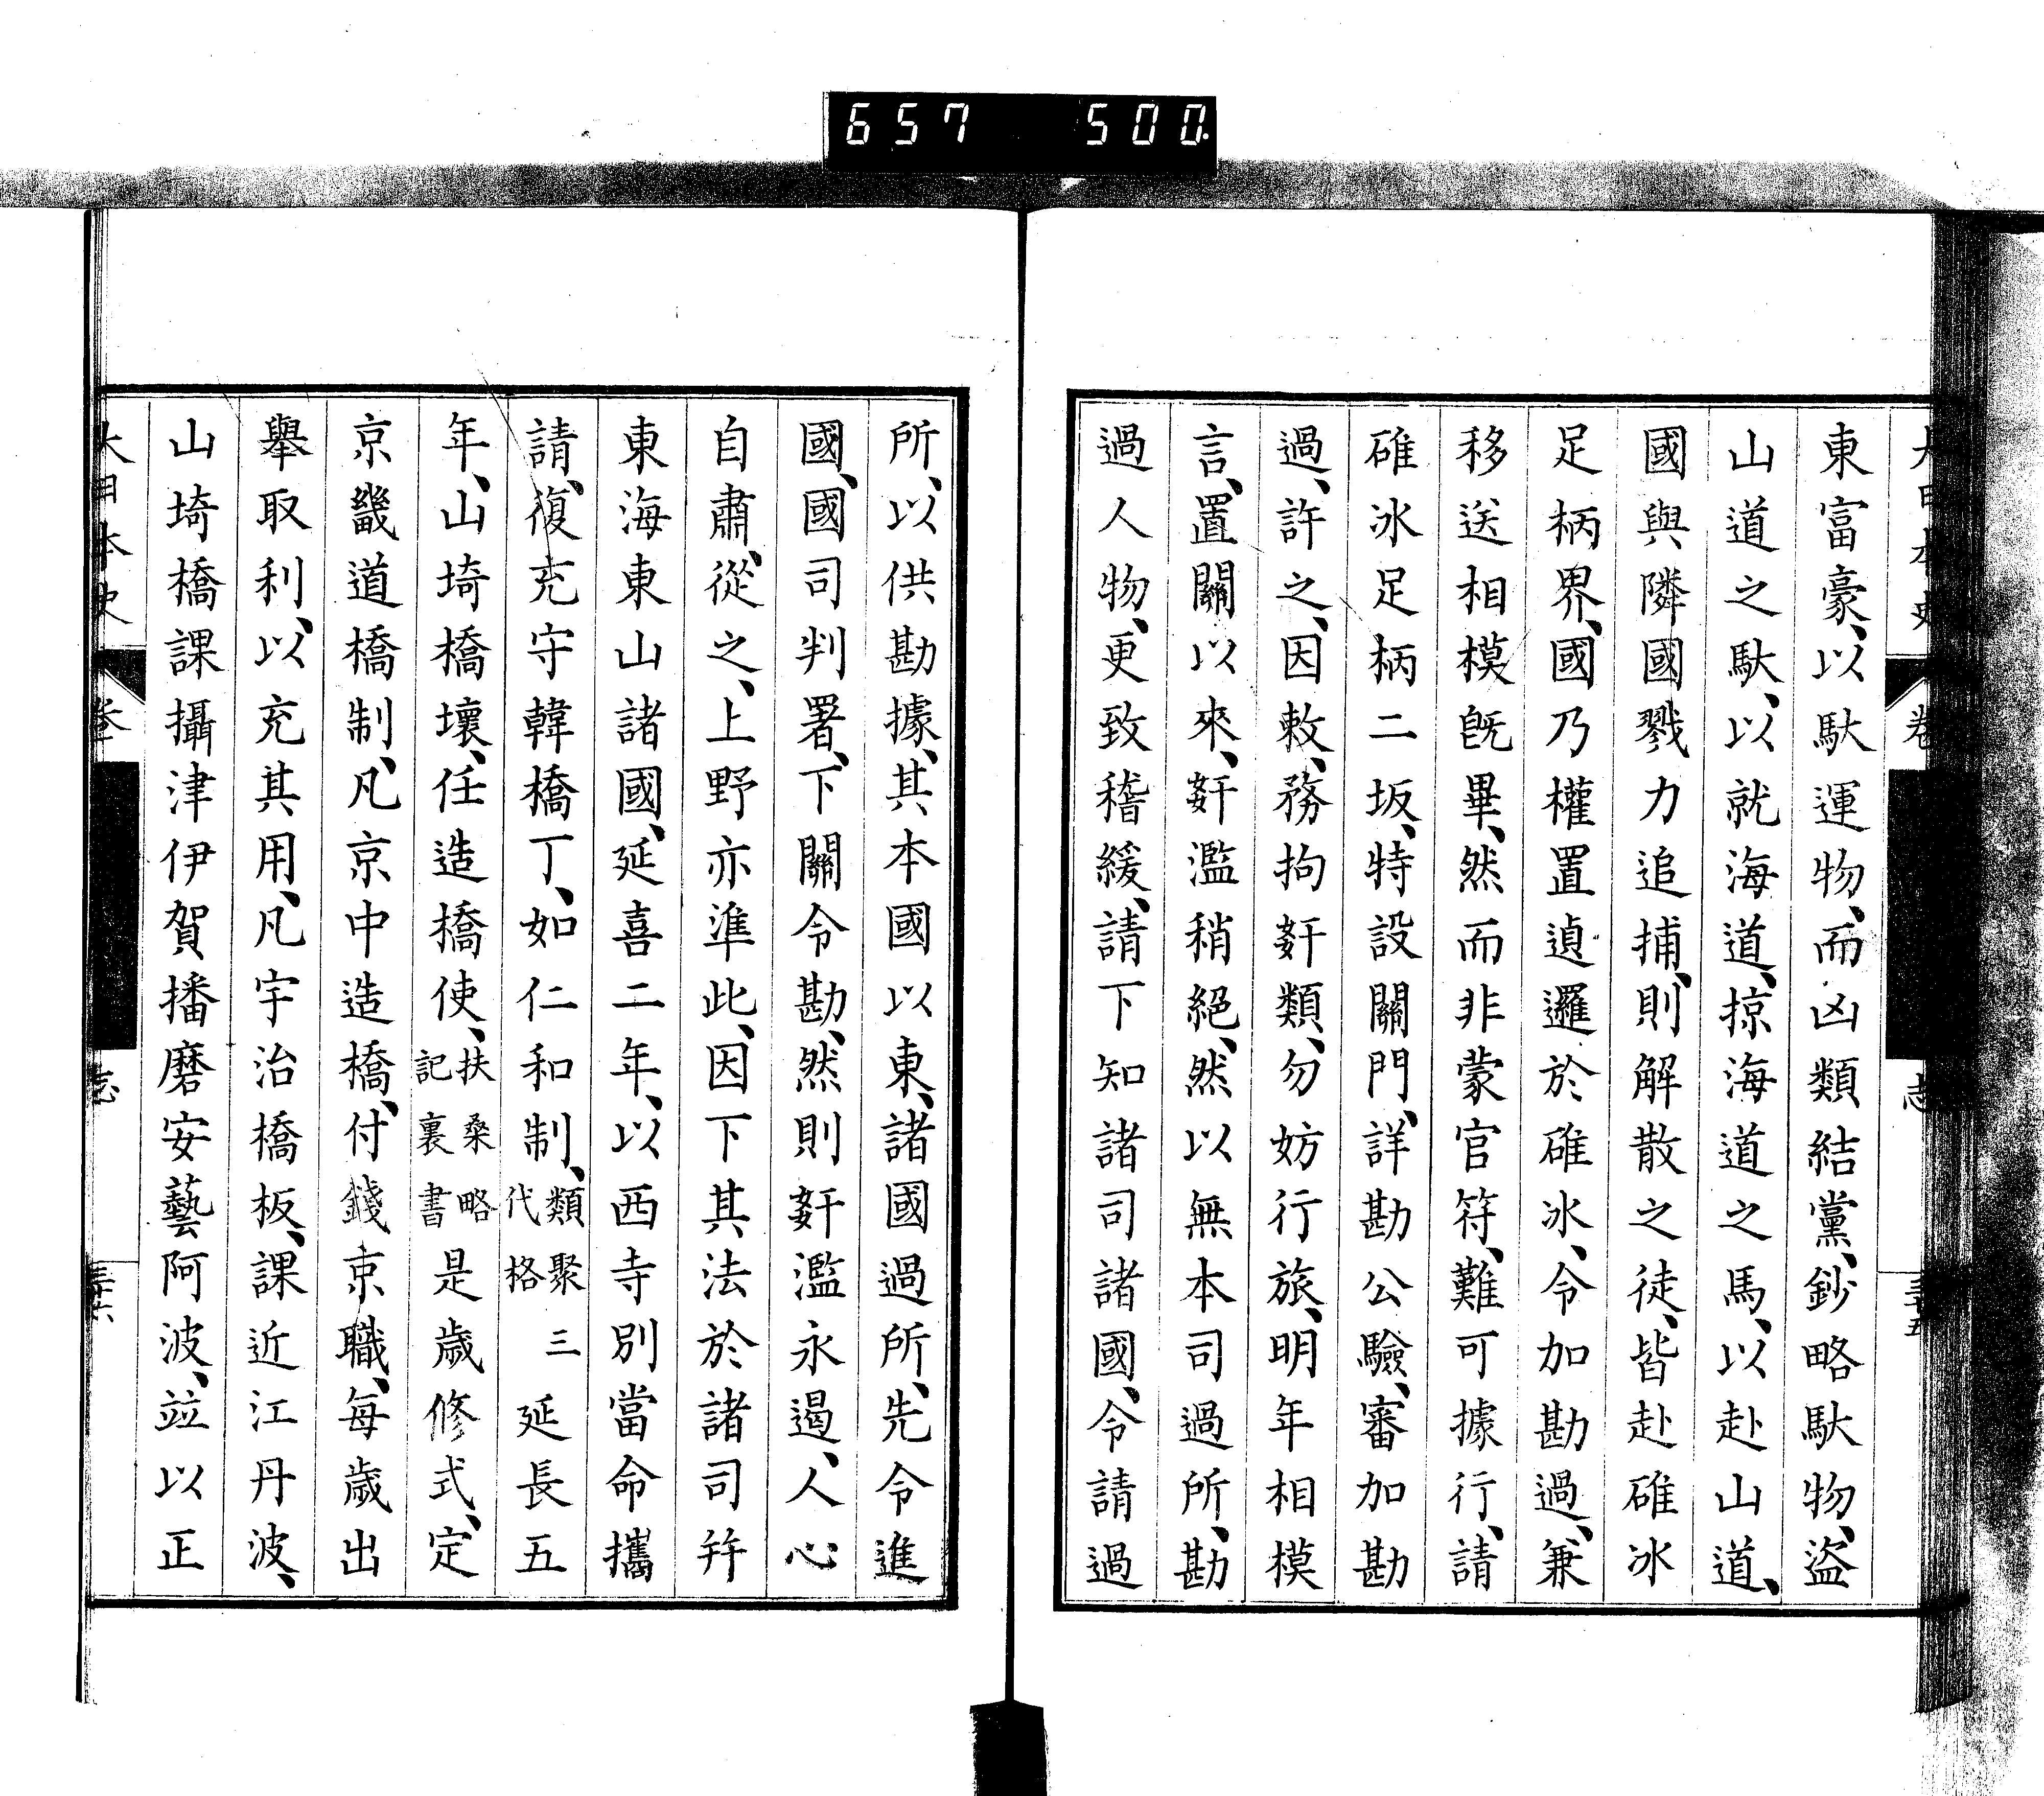 657 500
東富豪、以駄運物、而凶類結黨、鈔略駄物、盜
山道之駄、以就海道、掠海道之馬、以赴山道、
國與隣國戮力追捕、則解散之徒、皆赴碓冰
足柄界、國乃權置遉邏於碓冰、令加勘過、兼
移送相模既畢、然而非蒙官符、難可據行、請
碓冰足柄二坂、特設關門、詳勘公驗、審加勘
過、許之、因敕、務拘姧類、勿妨行旅、明年相模
言、置關以來、姧濫稍絕、然以無本司過所、勘
過人物、更致稽緩、請下知諸司諸國、令請過
所、以供勘據、其本國以東、諸國過所、先令進
國、國司判署、下關令勘、然則姧濫永遏、人心
自肅、從之、上野亦準此、因下其法於諸司幷
東海東山諸國、延喜二年、以西寺別當命攜
請、復充守韓橋丁、如仁和制、類聚三代格 延長五
年、山埼橋壞、任造橋使、扶桑略記裏書 是歲修式、定
京畿道橋制、凡京中造橋、付錢京職、每歲出
舉取利、以充其用、凡宇治橋板、課近江丹波、
山埼橋課攝津伊賀播磨安藝阿波、竝以正
大日本史 志